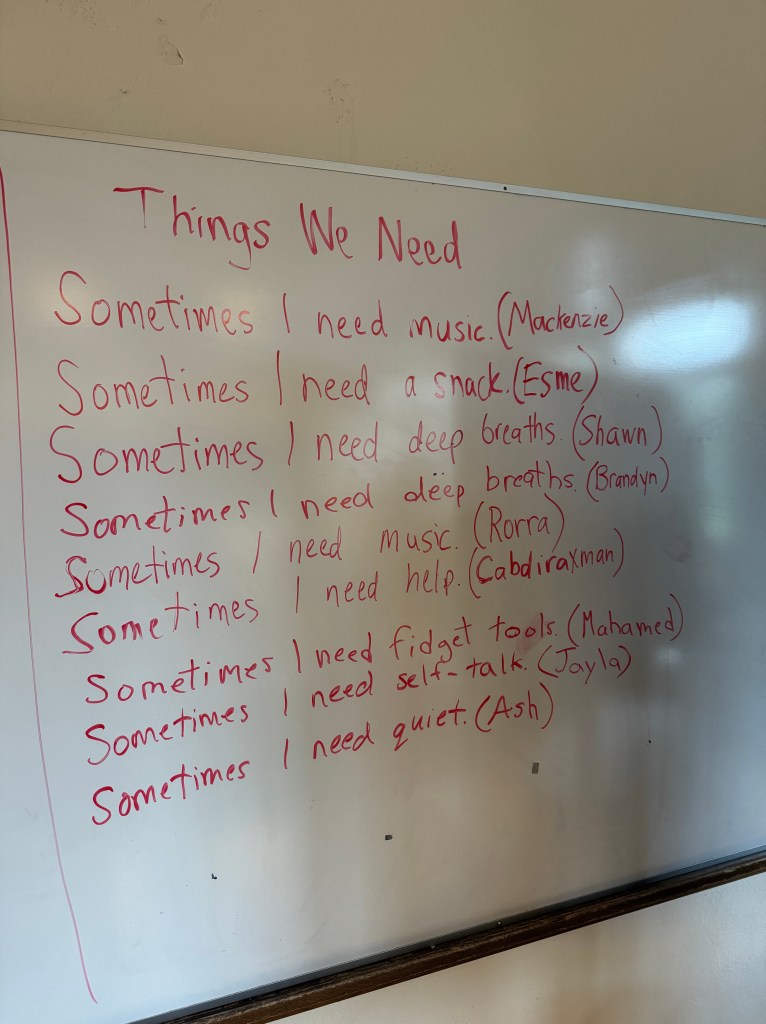 Things We Need
Sometimes I need music. (Mackenzie)
Sometimes I need a snack. (Esme)
Sometimes I need deep breaths. (Shawn)
Sometimes I need deep breaths. (Brandyn)
Sometimes I need music. (Rorra)
Sometimes I need help. (Cabdiraxman)
Sometimes I need fidget tools. (Mahamed)
Sometimes I need self-talk. (Jayla)
Sometimes I need quiet. (Ash)